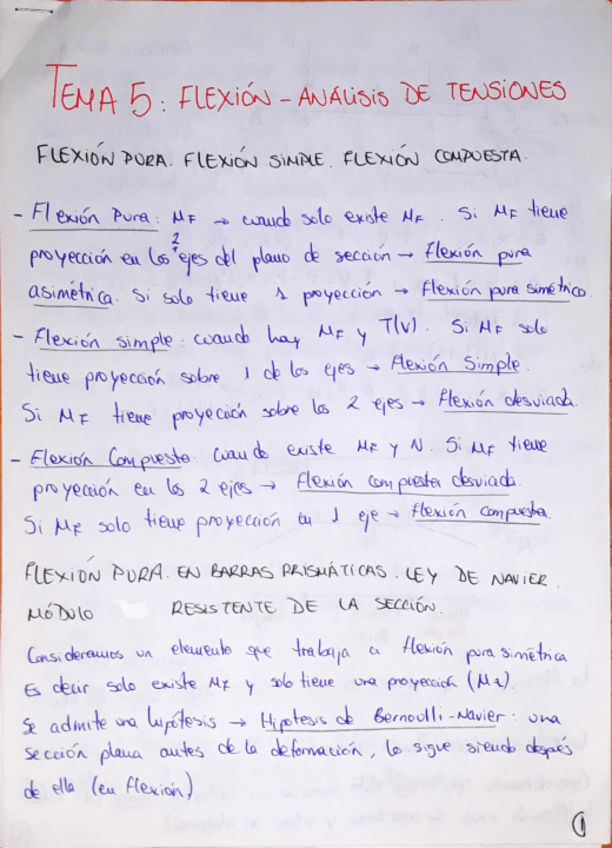 TEMA 5: FLEXIÓN - ANÁLISIS DE TENSIONES
FLEXIÓN PURA. FLEXIÓN SIMPLE. FLEXIÓN COMPUESTA.
- Flexión Pura: MF → cuando solo existe MF. Si MF tiene
proyección en los 2 ejes del plano de sección → flexión pura
asimétrica. Si solo tiene 1 proyección → flexión pura simétrica.
- Flexión simple: cuando hay MF y T(V). Si MF solo
tiene proyección sobre 1 de los ejes → flexión Simple.
Si MF tiene proyección sobre los 2 ejes → flexión desviada.
- Flexión Compuesta: cuando existe MF y N. Si MF tiene
proyección en los 2 ejes → Flexión compuesta desviada.
Si MF solo tiene proyección en 1 eje → flexión compuesta.
FLEXIÓN PURA. EN BARRAS PRISMÁTICAS. LEY DE NAVIER.
MÓDULO RESISTENTE DE LA SECCIÓN.
Consideramos un elemento que trabaja a flexión pura simétrica
Es decir solo existe MF y solo tiene una proyección (Mz)
Se admite una hipótesis → Hipotesis de Bernoulli-Navier: una
sección plana antes de la deformación, lo sigue siendo después
de ella (en flexión)
1